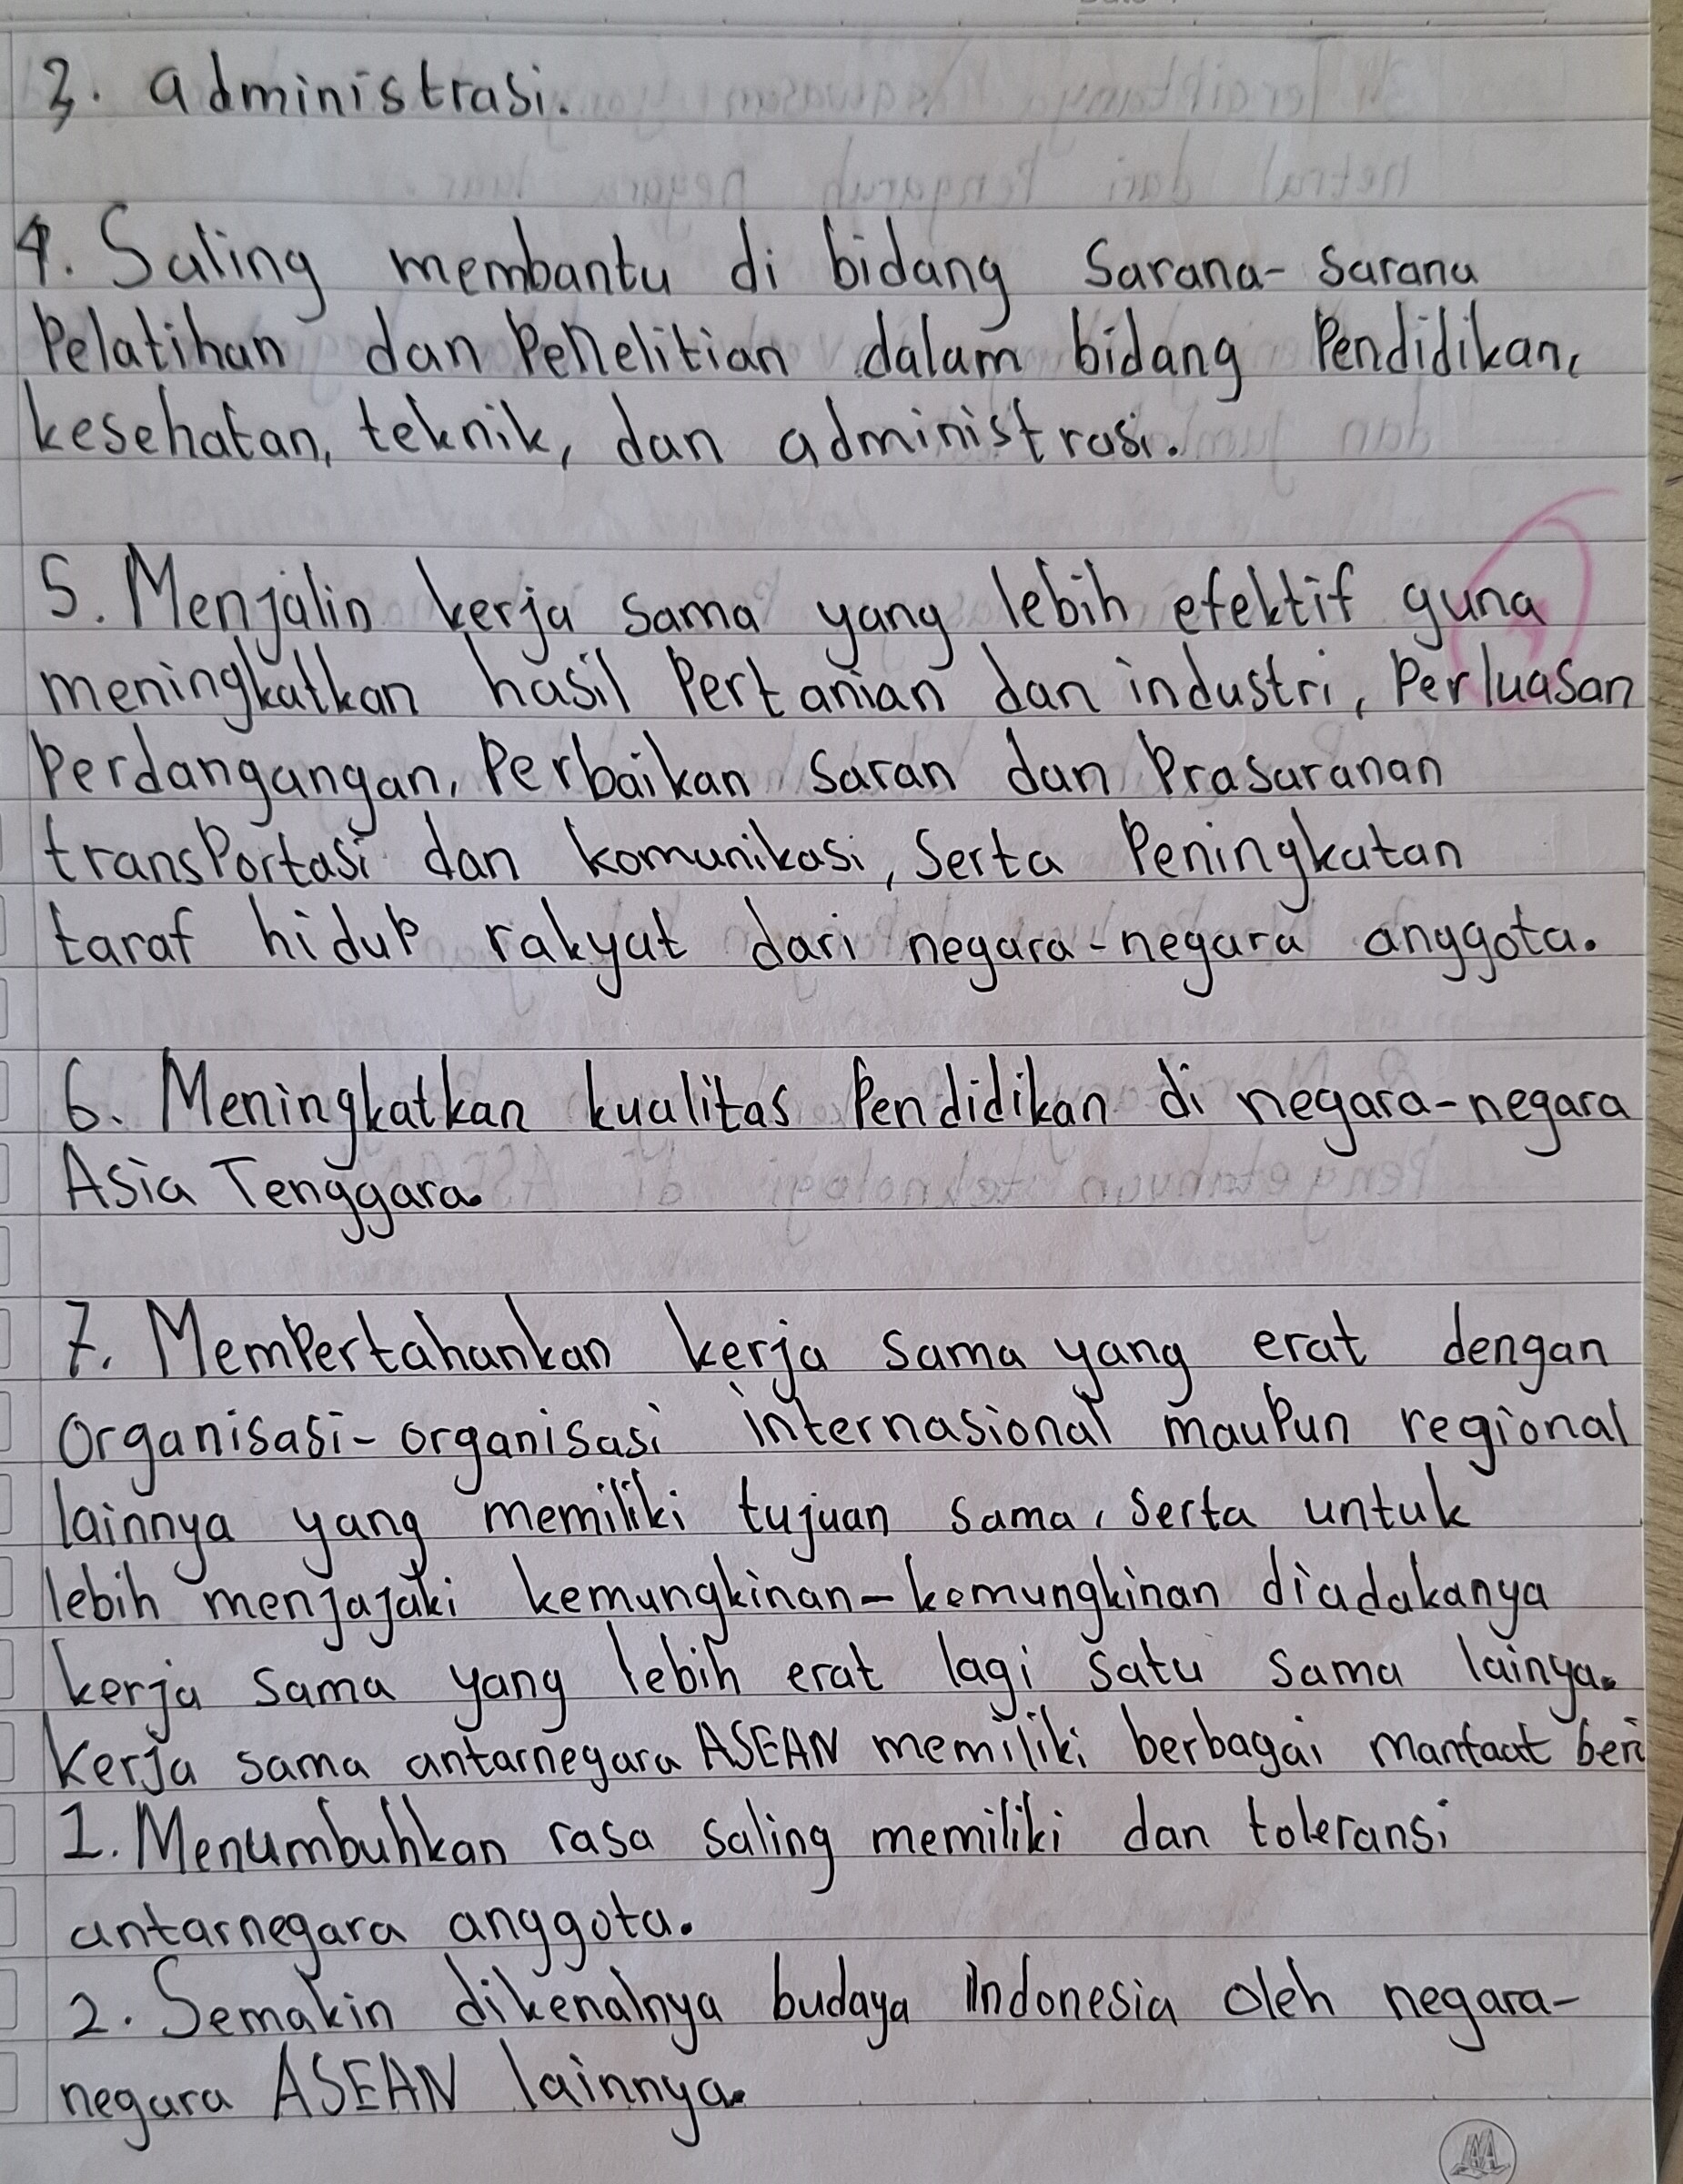 3. administrasi.
4. Saling membantu di bidang Sarana-sarana
Pelatihan dan Penelitian dalam bidang Pendidikan,
kesehatan, teknik, dan administrasi.
5. Menjalin kerja sama yang lebih efektif guna
meningkatkan hasil Pertanian dan industri, Perluasan
Perdangangan, Perbaikan saran dan Prasaranan
transportasi dan komunikasi, Serta Peningkatan
taraf hidup rakyat dari negara-negara anggota.
6. Meningkatkan kualitas Pendidikan di negara-negara
Asia Tenggara.
7. Mempertahankan kerja sama yang erat dengan
Organisasi-organisasi internasional maupun regional
lainnya yang memiliki tujuan sama, Serta untuk
lebih menjajaki kemungkinan-kemungkinan diadakanya
kerja sama yang lebih erat lagi satu sama lainya.
Kerja sama antarnegara ASEAN memiliki berbagai manfaat beri
1. Menumbuhkan rasa saling memiliki dan toleransi
antarnegara anggota.
2. Semakin dikenalnya budaya Indonesia oleh negara-
negara ASEAN lainnya.